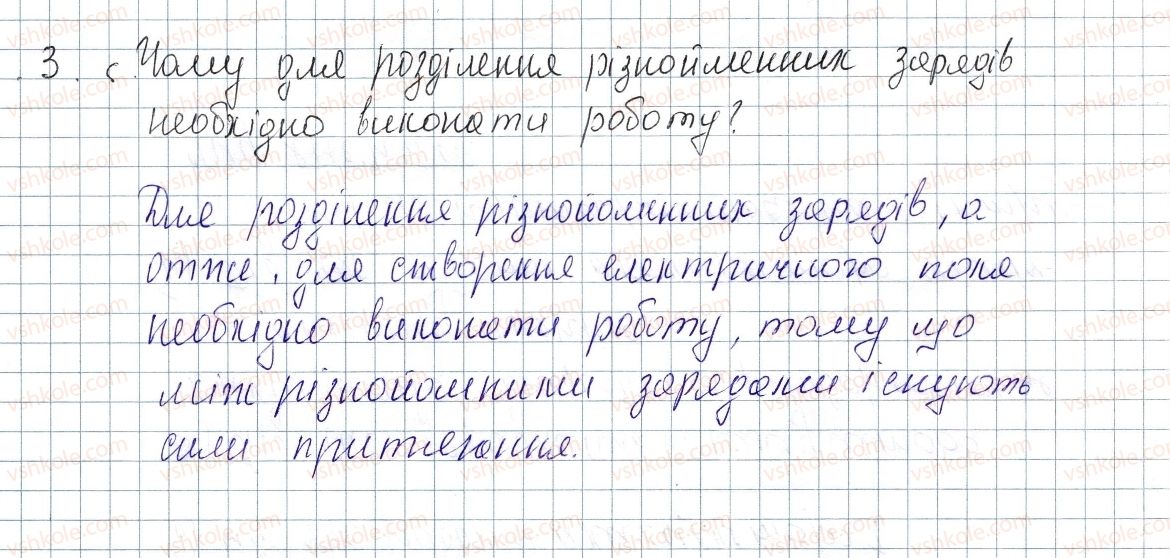 3. с. Чому для розділення різнойменних зарядів
необхідно виконати роботу?
Для розділення різнойоменних зарядів, а
отже, для створення електричного поля
необхідно виконати роботу, тому що
між різнойомними зарядами існують
сили притягання.